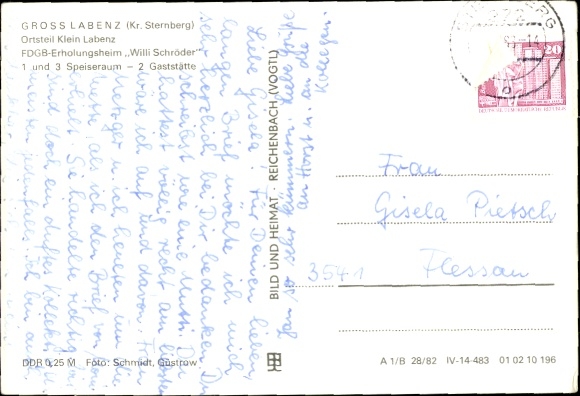 GROSS LABENZ (Kr. Sternberg)
Ortsteil Klein Labenz
FDGB-Erholungsheim „Willi Schröder"
1 und 3 Speiseraum – 2 Gaststätte
Liebe Gisela, für Deinen lieben,
langen Brief möchte ich mich
sehr herzlich bei Dir bedanken. Du
schreibst wie eine Mutti. Du
hattest völlig recht am liebsten
wäre ich auf und davon. Frau
Metzger u. ich heulten um die
Wette, als ich den Brief
Sie handelte richtig.
sind doch ein duftes Kollektiv
ich bin auch
Liebe Grüße
an Horst u. an die
Kollegen.
BILD UND HEIMAT · REICHENBACH (VOGTL)
20
DEUTSCHE DEMOKRATISCHE REPUBLIK
Frau
Gisela Pietsch
3541 Flessau
DDR 0,25 M Foto: Schmidt, Güstrow
A 1/B 28/82 IV-14-483 01 02 10 196